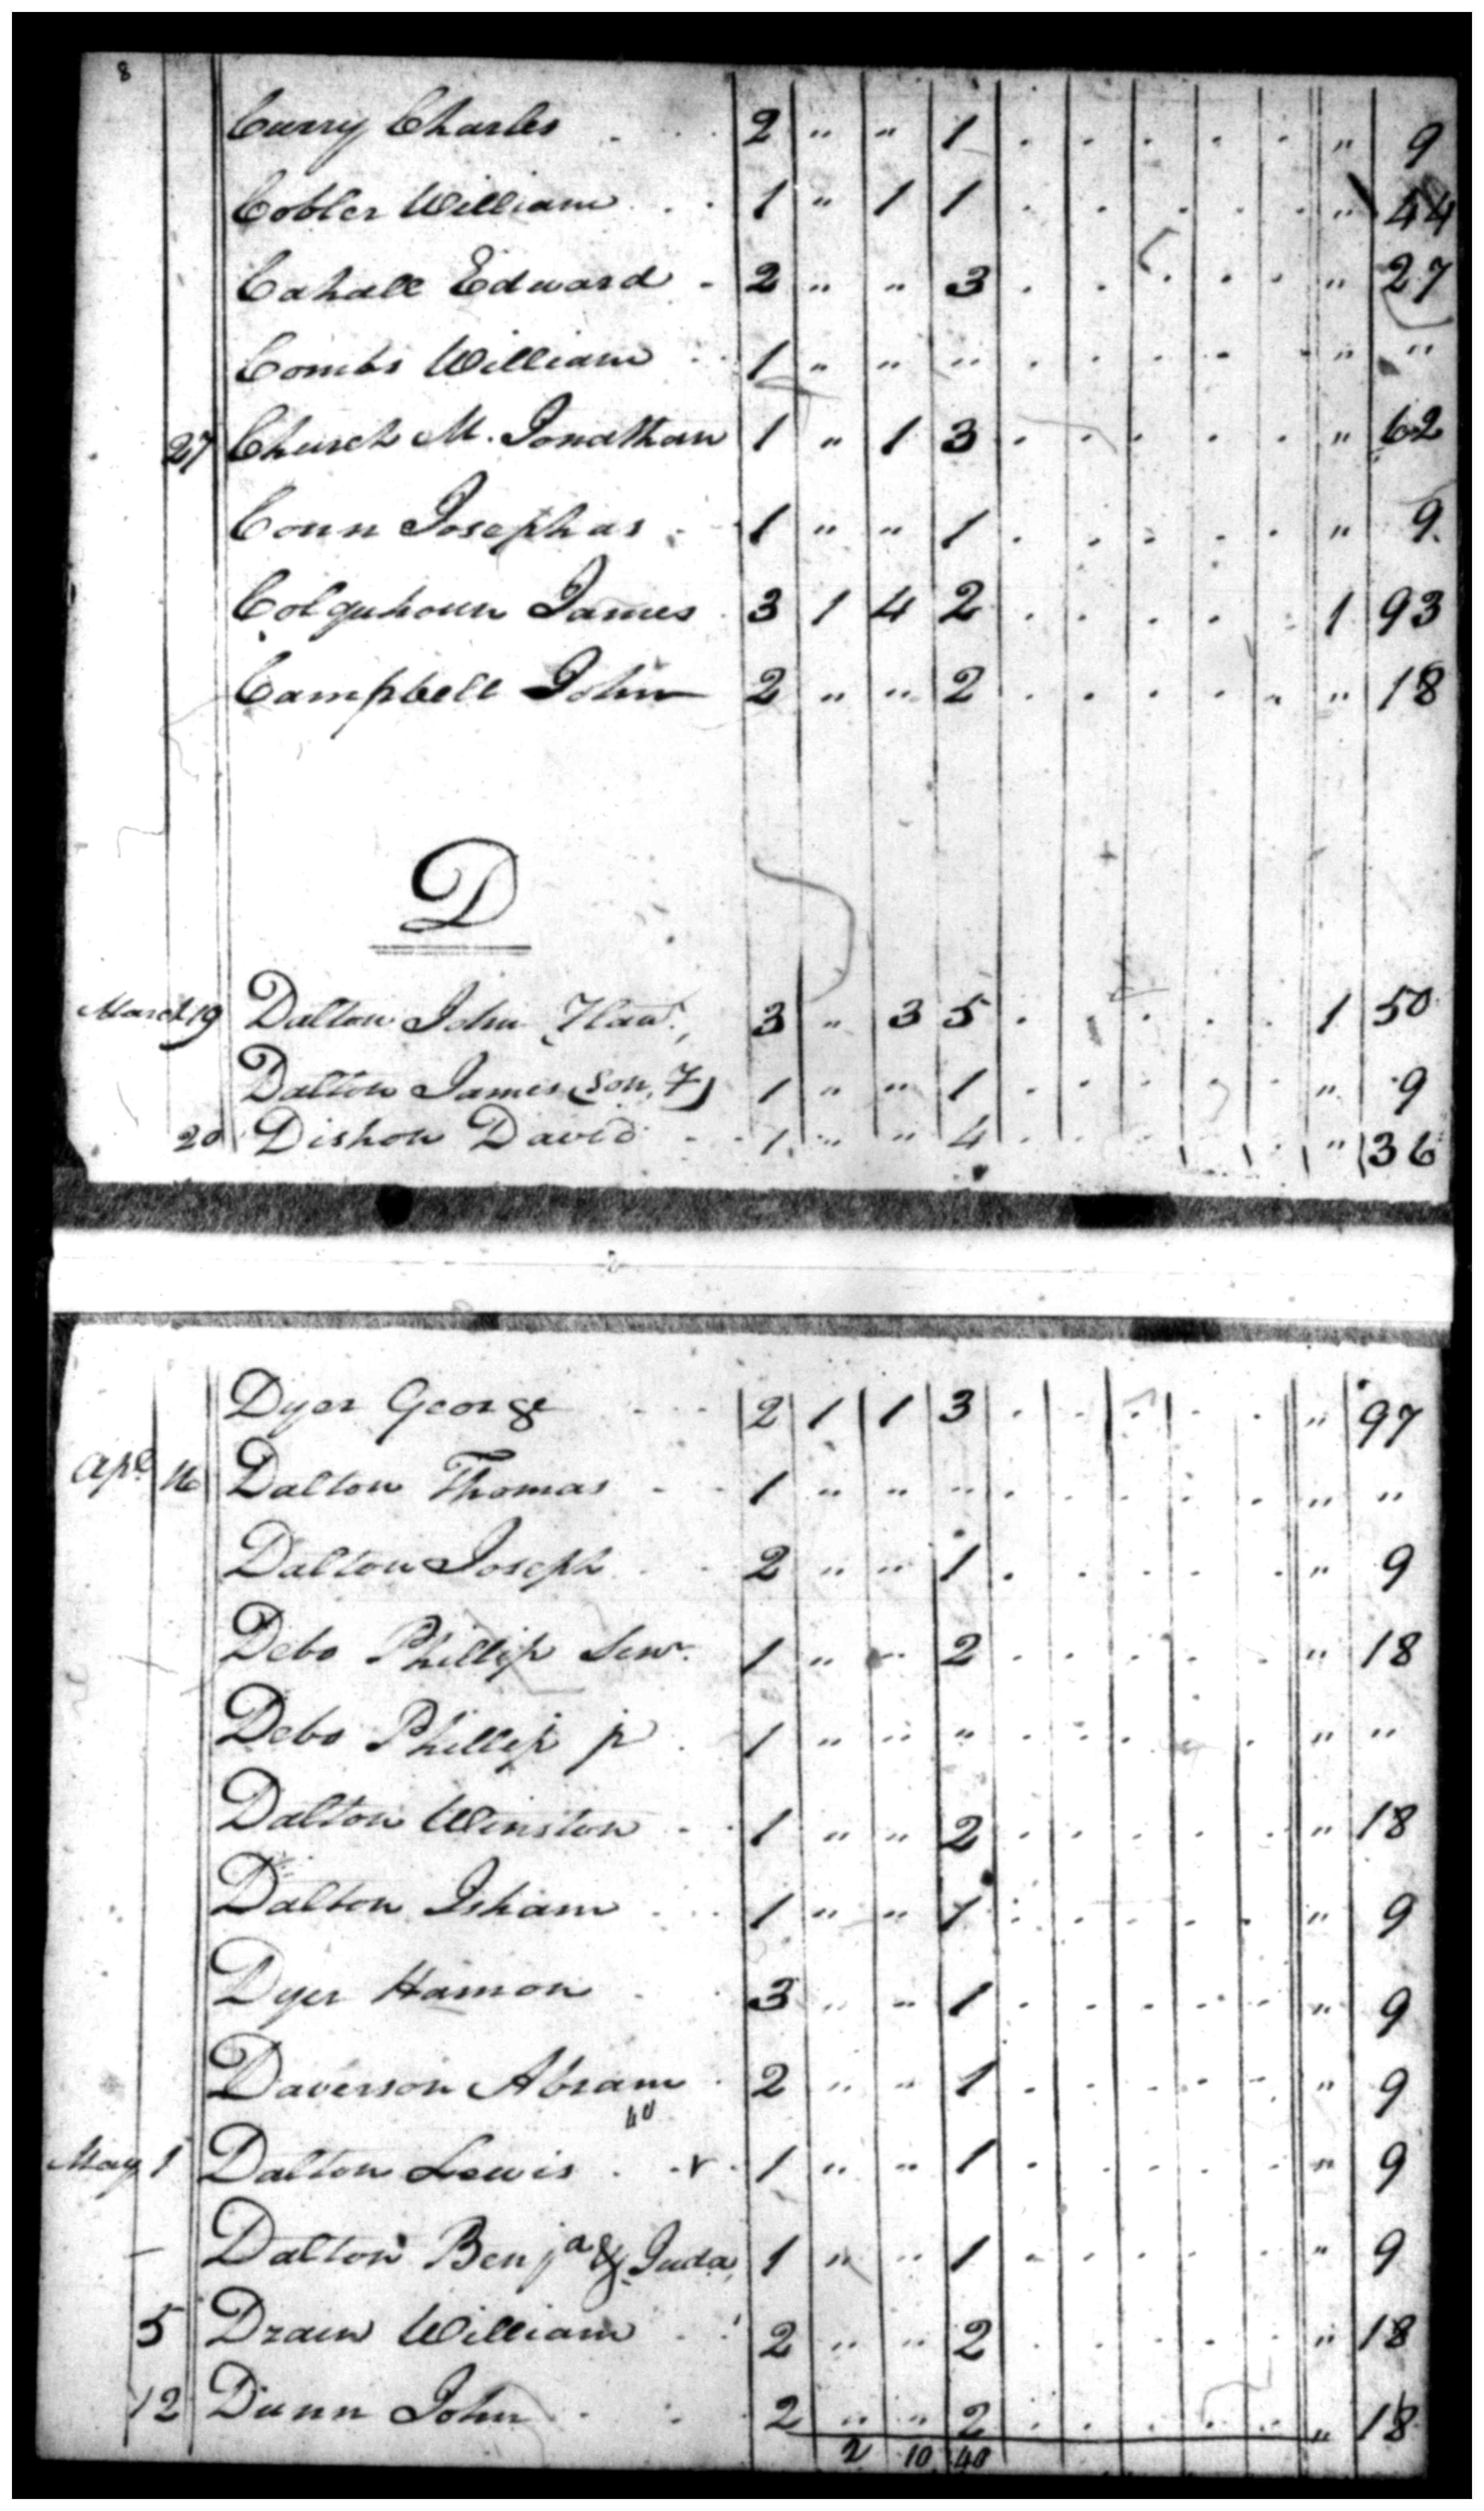 8
Curry Charles 2 " " 1 . . . . . " 9
Cobler William 1 " 1 1 . . . . . " 44
Cahall Edward 2 " " 3 . . . . . " 27
Combs William 1 " " " . . . . . " "
27 Church M. Jonathan 1 " 1 3 . . . . . " 62
Conn Josephas 1 " " 1 . . . . . " 9
Colquhoun James 3 1 4 2 . . . . . 1 93
Campbell John 2 " " 2 . . . . . " 18
D
March 19 Dalton John 3 " 3 5 . . . . . 1 50
Dalton James (Son, 7) 1 " " 1 . . . . . " 9
20 Dishon David 1 " " 4 . . . . . " 36
Dyer George 2 1 1 3 . . . . . " 97
Apl 16 Dalton Thomas 1 " " " . . . . . " "
Dalton Joseph 2 " " 1 . . . . . " 9
Debo Phillip Senr. 1 " " 2 . . . . . " 18
Debo Phillip jr 1 " " " . . . . . " "
Dalton Winston 1 " " 2 . . . . . " 18
Dalton Isham 1 " " 1 . . . . . " 9
Dyer Hamon 3 " " 1 . . . . . " 9
Daverson Abram 2 " " 1 . . . . . " 9
May 1 Dalton Lewis 1 " " 1 . . . . . " 9
Dalton Benja & Juda 1 " " 1 . . . . . " 9
5 Drain William 2 " " 2 . . . . . " 18
12 Dunn John 2 " " 2 . . . . . " 18
2 10 40